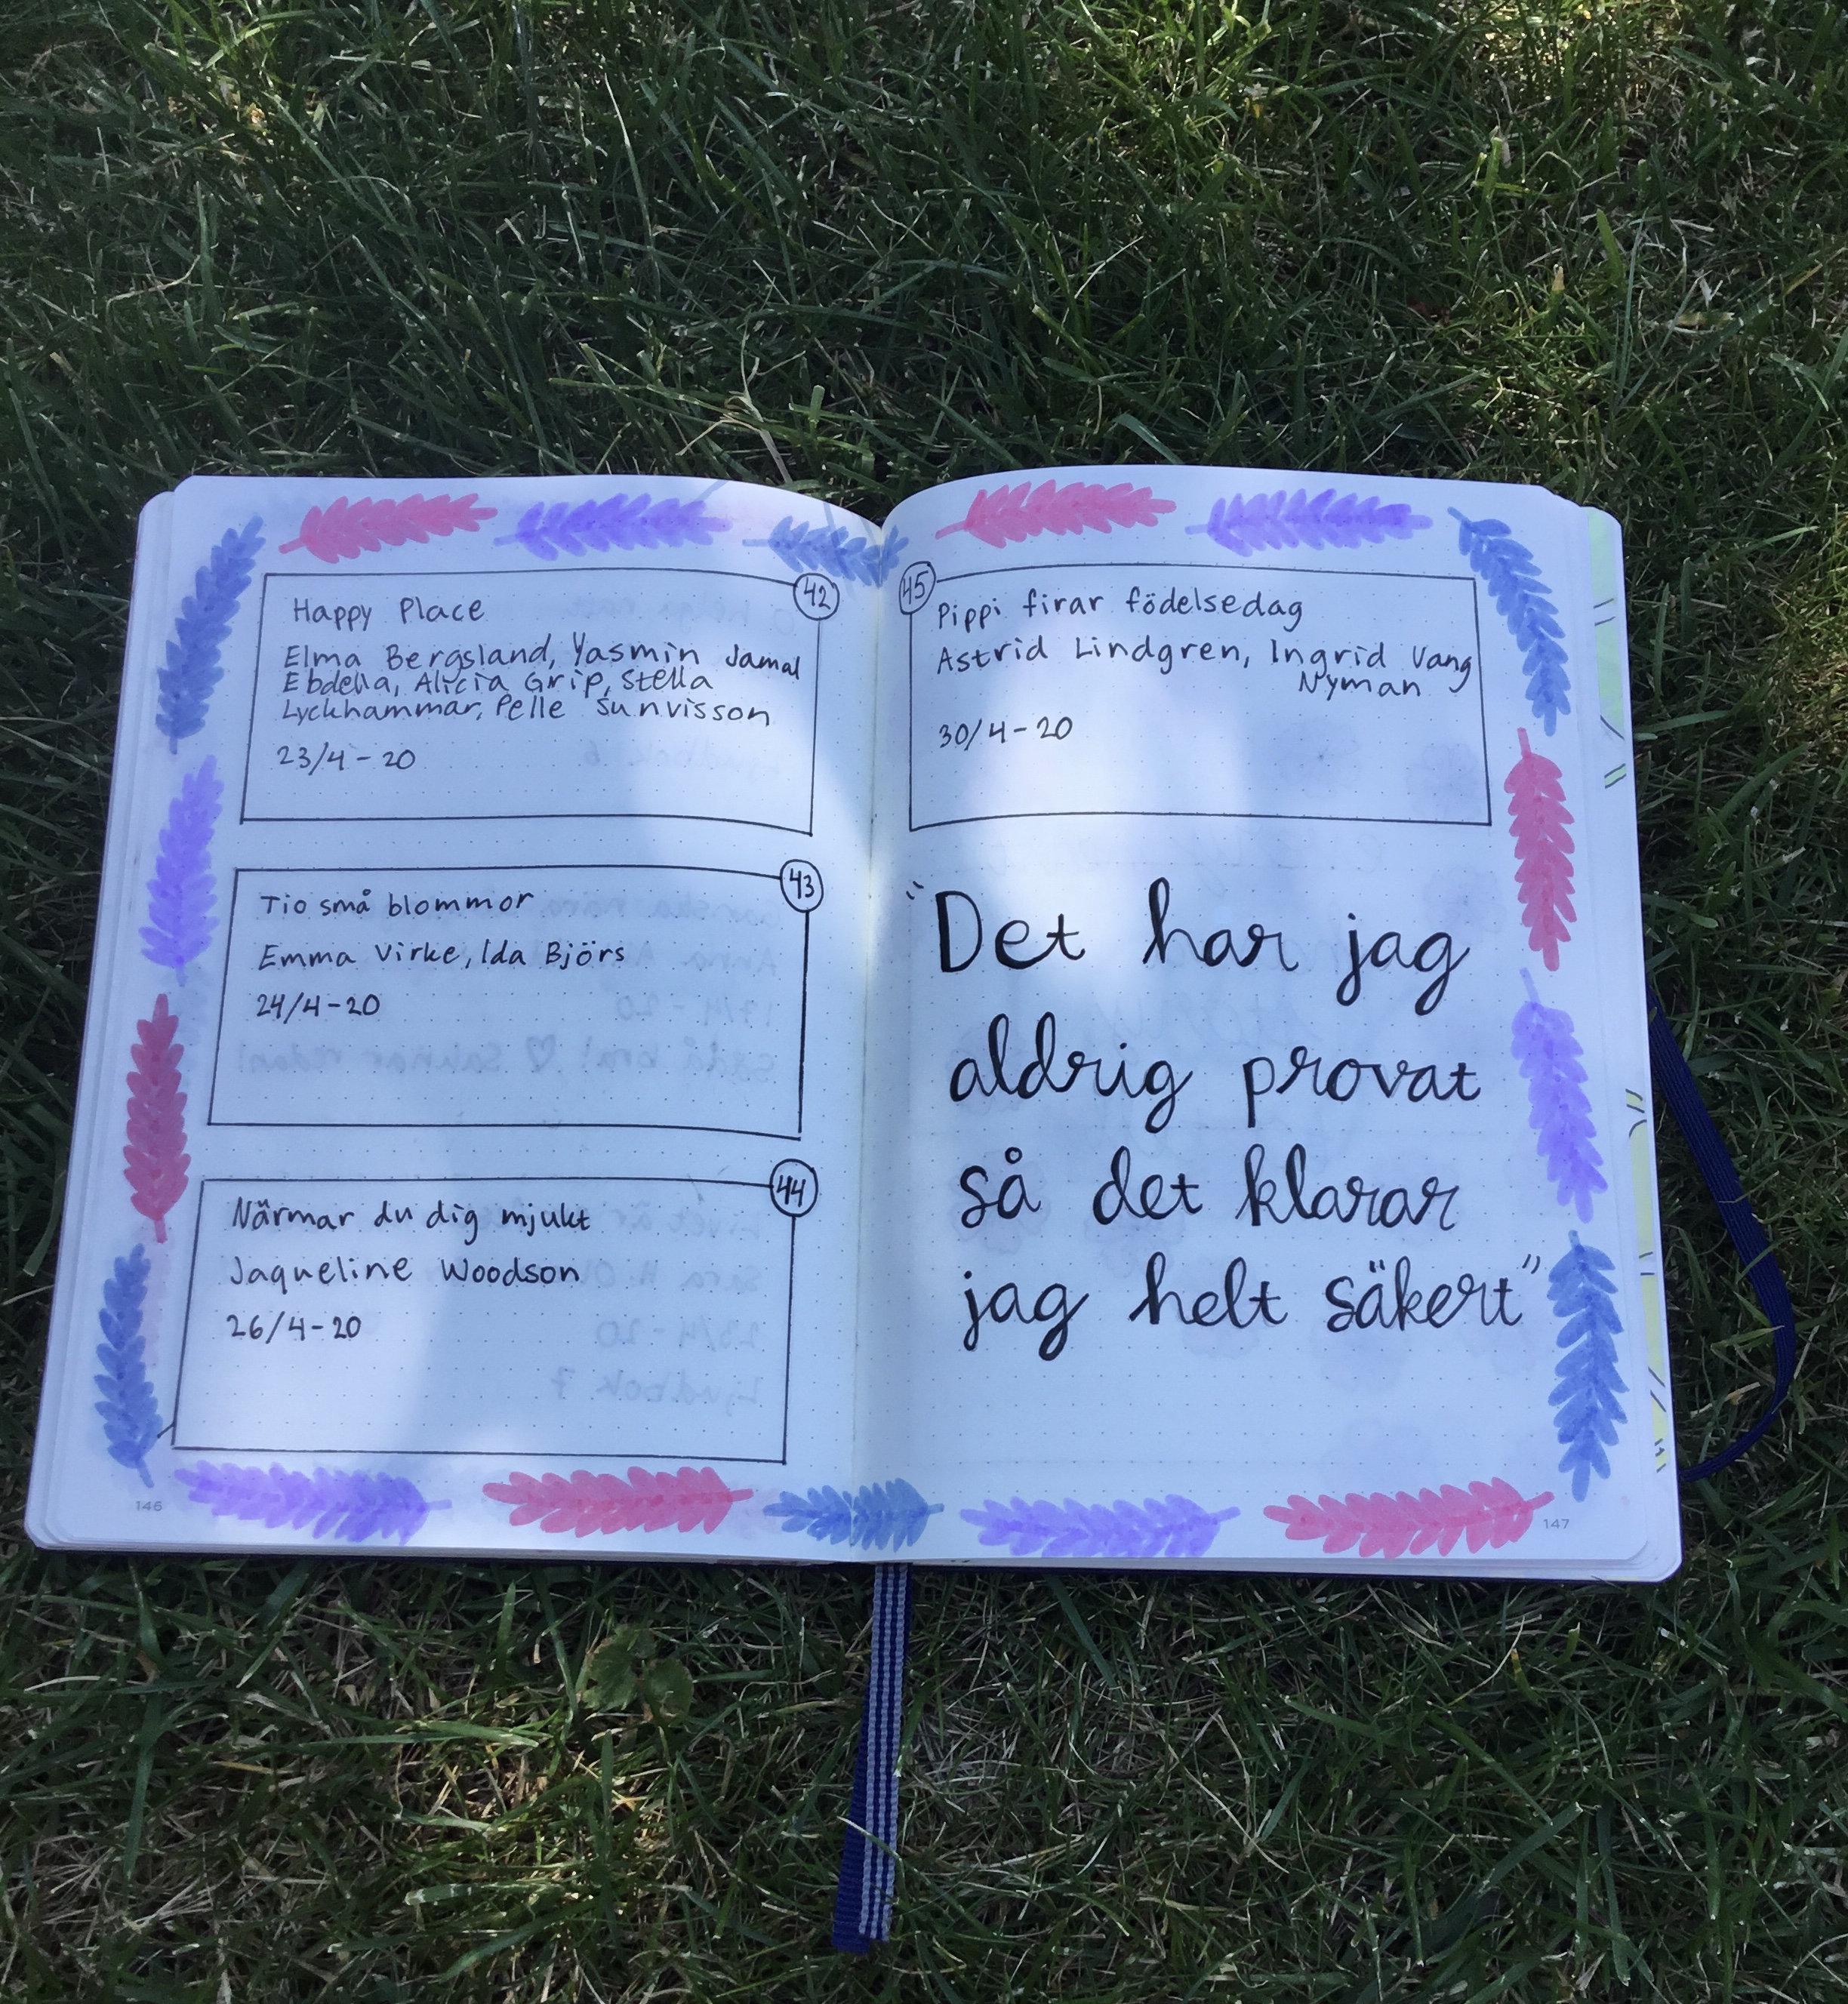 42
Happy Place
Elma Bergsland, Yasmin Jamal
Ebdella, Alicia Grip, Stella
Lyckhammar, Pelle Sunvisson
23/4-20
43
Tio små blommor
Emma Virke, Ida Björs
24/4-20
44
Närmar du dig mjukt
Jaqueline Woodson
26/4-20
146
45
Pippi firar födelsedag
Astrid Lindgren, Ingrid Vang
Nyman
30/4-20
"Det har jag
aldrig provat
så det klarar
jag helt säkert"
147